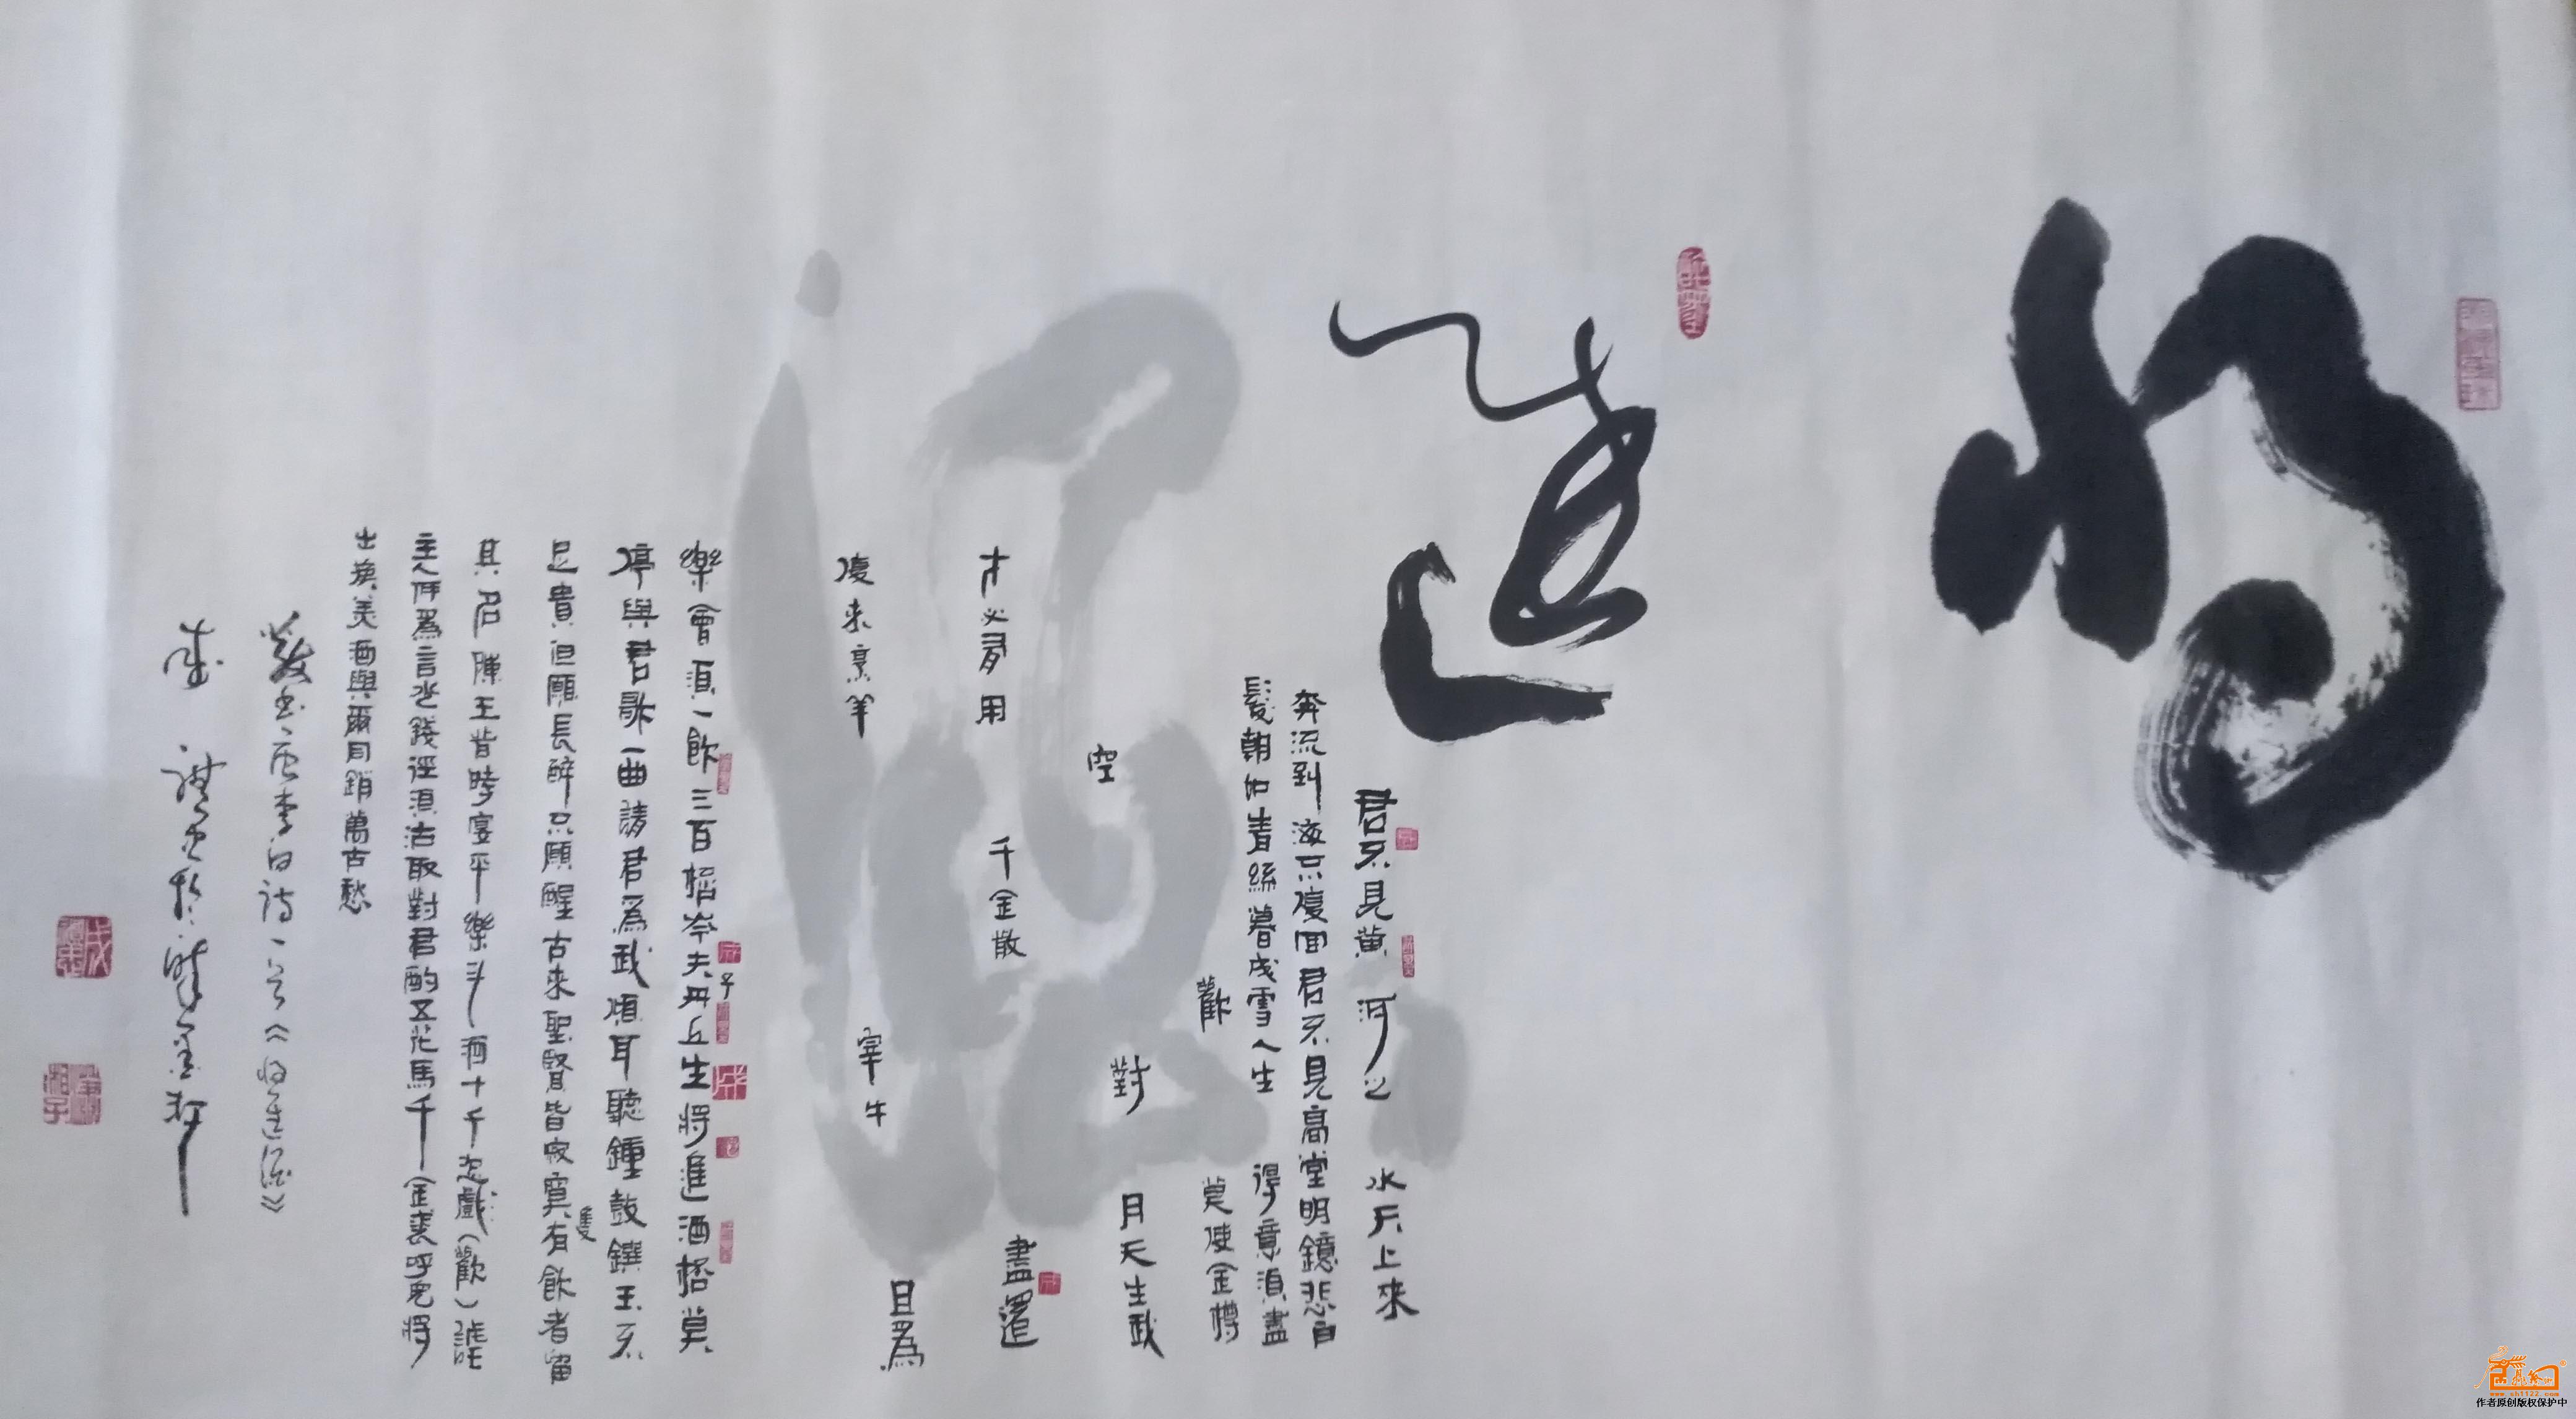 将
進
酒
君不見黄河之水天上來
奔流到海不復回君不見高堂明鏡悲白
髮朝如青絲暮成雪人生得意須盡
歡莫使金樽
空對月天生我
才必有用千金散盡還
復來烹羊宰牛且為
樂會須一飲三百杯岑夫子丹丘生將進酒杯莫
停與君歌一曲請君為我傾耳聽鐘鼓饌玉不
足貴但願長醉只願醒古來聖賢皆寂寞有飲者留
隻
其名陳王昔時宴平樂斗酒十千恣戲(歡)謔
主人何為言少錢徑須沽取對君酌五花馬千金裘呼兒將
出換美酒與爾同銷萬古愁
唐李白詩一首《将進酒》
www.sh1122.com
作者原创版权保护中